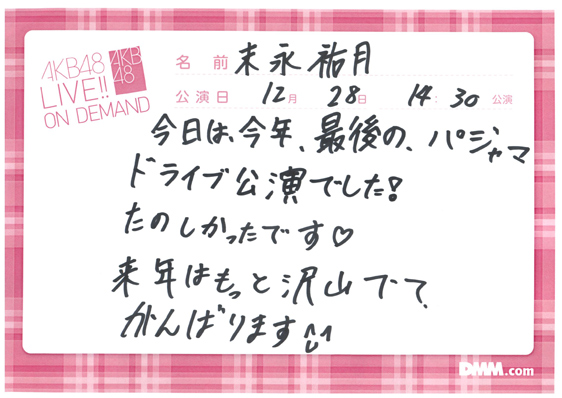 AKB48
LIVE!!
ON DEMAND
AKB
48
名前 末永祐月
公演日 12月 28日 14:30公演
今日は、今年、最後の、パジャマ
ドライブ公演でした!
たのしかったです♡
来年はもっと沢山でて、
がんばります
DMM.com